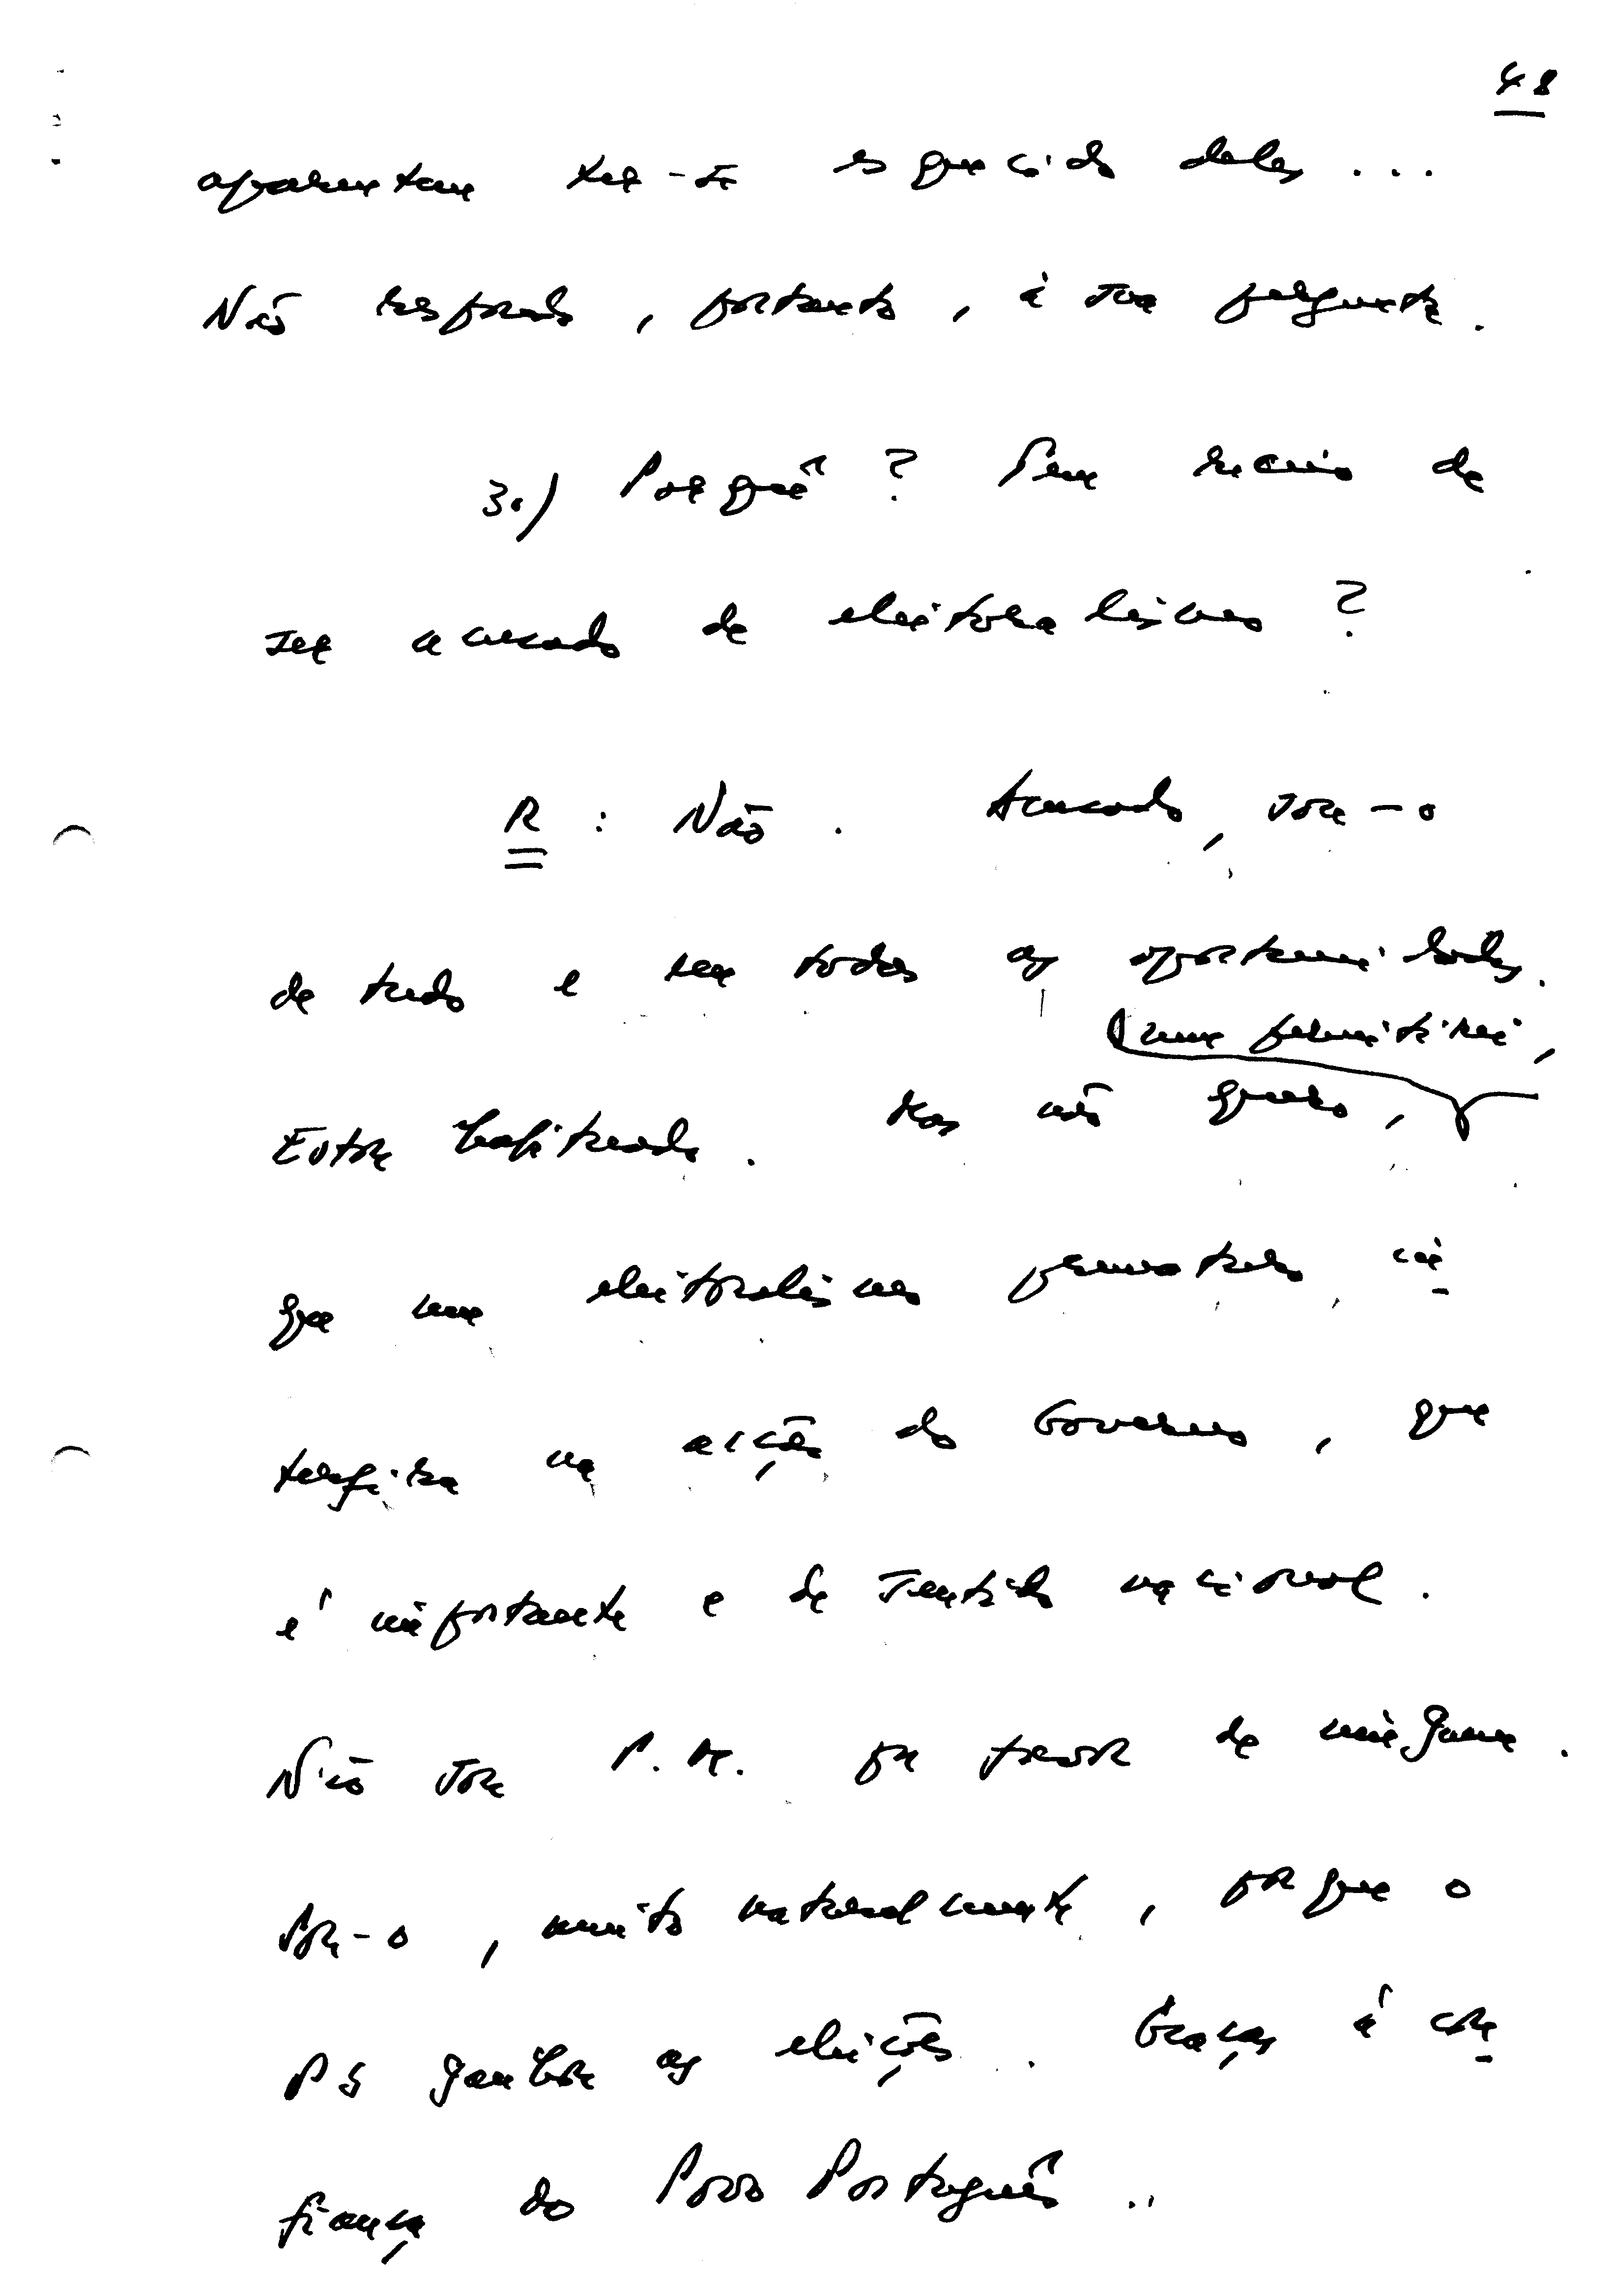 48
aparentam ter-se esquecido deles...
Não respondo, portanto, à sua pergunta.
3.) Porquê? Tem receio de
ser acusado de eleitoralismo?
R: Não. Acusado, sou-o
de tudo e em todas as oportunidades.
Estou habituado. Mas não quero, nem permitirei,
que um eleitoralismo prematuro in-
terfira na acção do Governo, que
é importante e de sentido nacional.
Não sou P.M. por favor de ninguém.
Sou-o, muito naturalmente, porque o
PS ganhou as eleições. Graças à con-
fiança do Povo Português..